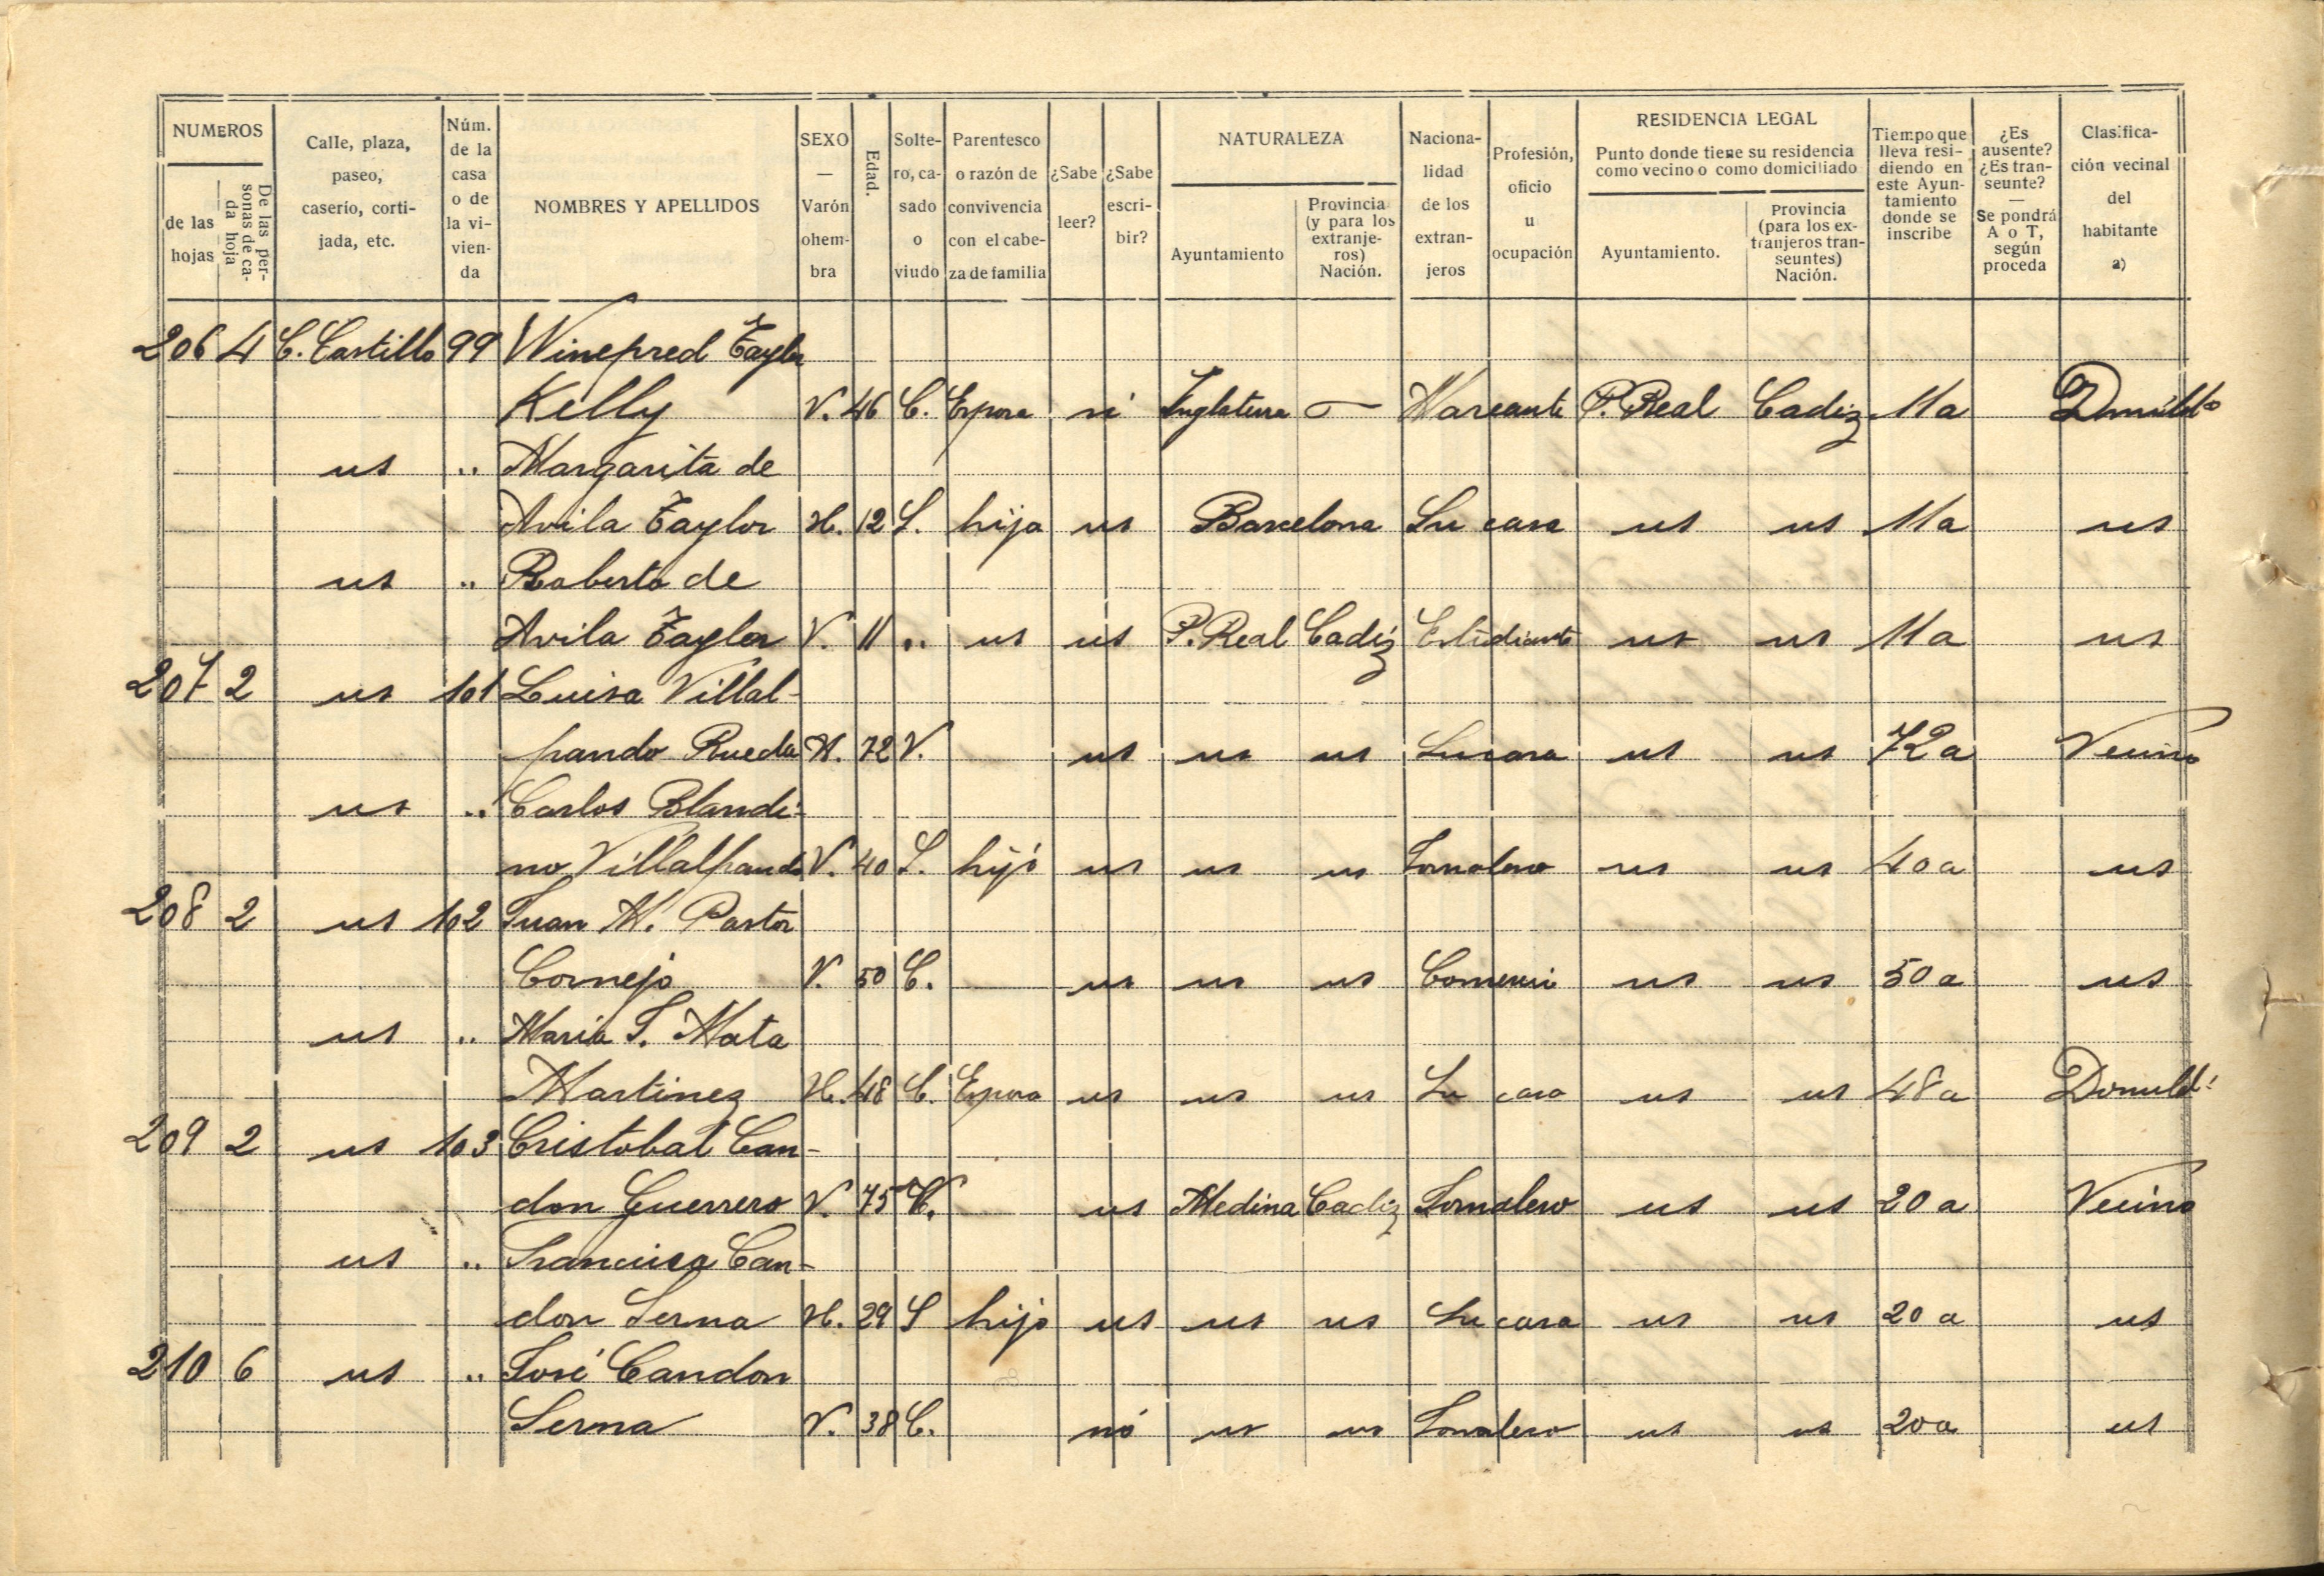 NUMEROS
de las hojas
De las personas de cada hoja
Calle, plaza, paseo, caserío, cortijada, etc.
Núm. de la casa o de la vivienda
NOMBRES Y APELLIDOS
SEXO — Varón o hembra
Edad.
Soltero, casado o viudo
Parentesco o razón de convivencia con el cabeza de familia
¿Sabe leer?
¿Sabe escribir?
NATURALEZA
Ayuntamiento
Provincia (y para los extranjeros) Nación.
Nacionalidad de los extranjeros
Profesión, oficio u ocupación
RESIDENCIA LEGAL
Punto donde tiene su residencia como vecino o como domiciliado
Ayuntamiento.
Provincia (para los extranjeros transeuntes) Nación.
Tiempo que lleva residiendo en este Ayuntamiento donde se inscribe
¿Es ausente? ¿Es transeunte? — Se pondrá A o T, según proceda
Clasificación vecinal del habitante a)
206 4 C. Castillo 99 Winepred Taylor
Kelly V. 46 C. Esposa si Inglaterra — Marcante P. Real Cadiz 11 a
us .. Margarita de
Avila Taylor H. 12 S. hija us Barcelona Su casa us us 11 a us
us .. Roberto de
Avila Taylor V. 11 .. us us P. Real Cadiz Estudiante us us 11 a us
207 2 us 101 Luisa Villal-
pando Rueda H. 72 V. us us us Su casa us us 72 a Vecino
us .. Carlos Blandi-
no Villalpando V. 40 S. hijo us us us Jornalero us us 40 a us
208 2 us 102 Juan M. Pastor
Cornejo V. 50 C. — us us us Comercio us us 50 a us
us .. Maria J. Mata
Martinez H. 48 C. Esposa us us us Su casa us us 48 a
209 2 us 103 Cristobal Can-
don Guerrero V. 75 V. us Medina Cadiz Jornalero us us 20 a Vecino
us .. Francisca Can-
don Serna H. 29 S hija us us us Su casa us us 20 a us
210 6 us .. José Candon
Serna V. 38 C. nó us us Jornalero us us 20 a us